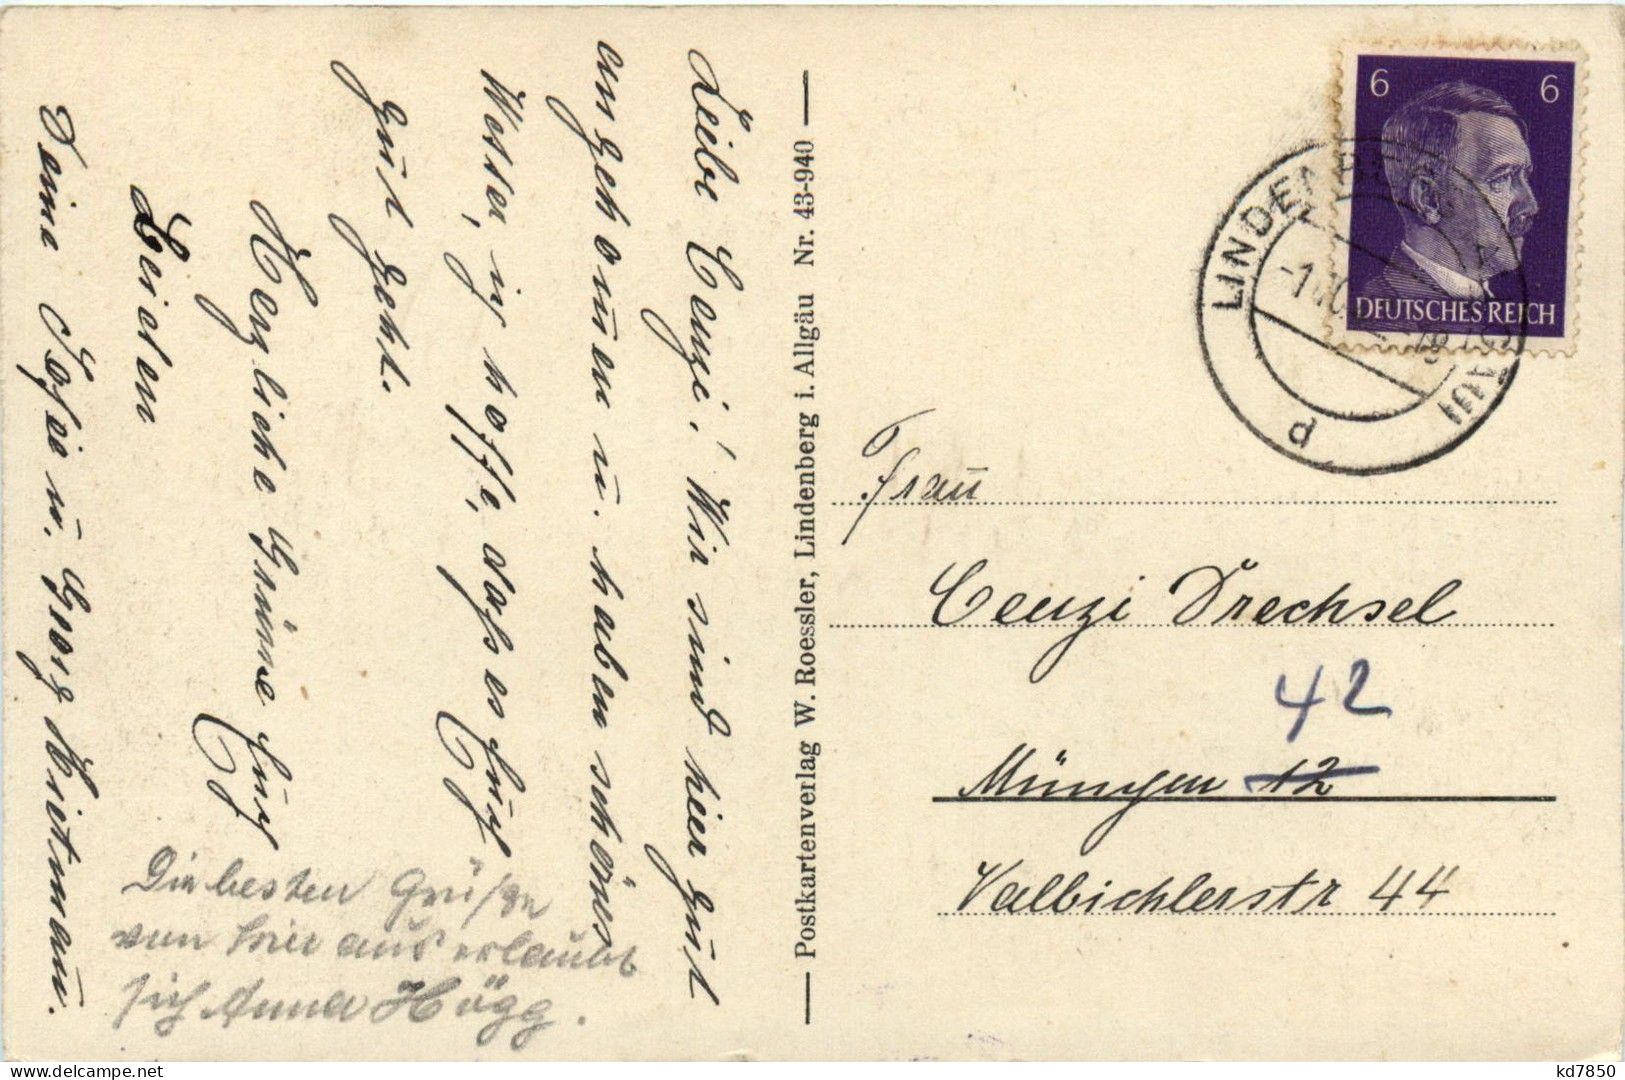 Leibe Cenzi! Wir sind hier gut
angekomen u. haben schönes
Wetter, ich hoffe, dass es Euch
gut geht.
Herzliche Grüsse Euch
Beiden
Deine Josie u. Georg
Die besten Grüße
von hier aus erlaubt
sich Anna Högg.
Postkartenverlag W. Roessler, Lindenberg i. Allgäu Nr. 43-940
6 6
DEUTSCHES REICH
LINDENBERG
-1
p
Frau
Cenzi Drechsel
42
München 12
Valbichlerstr 44
kd7850